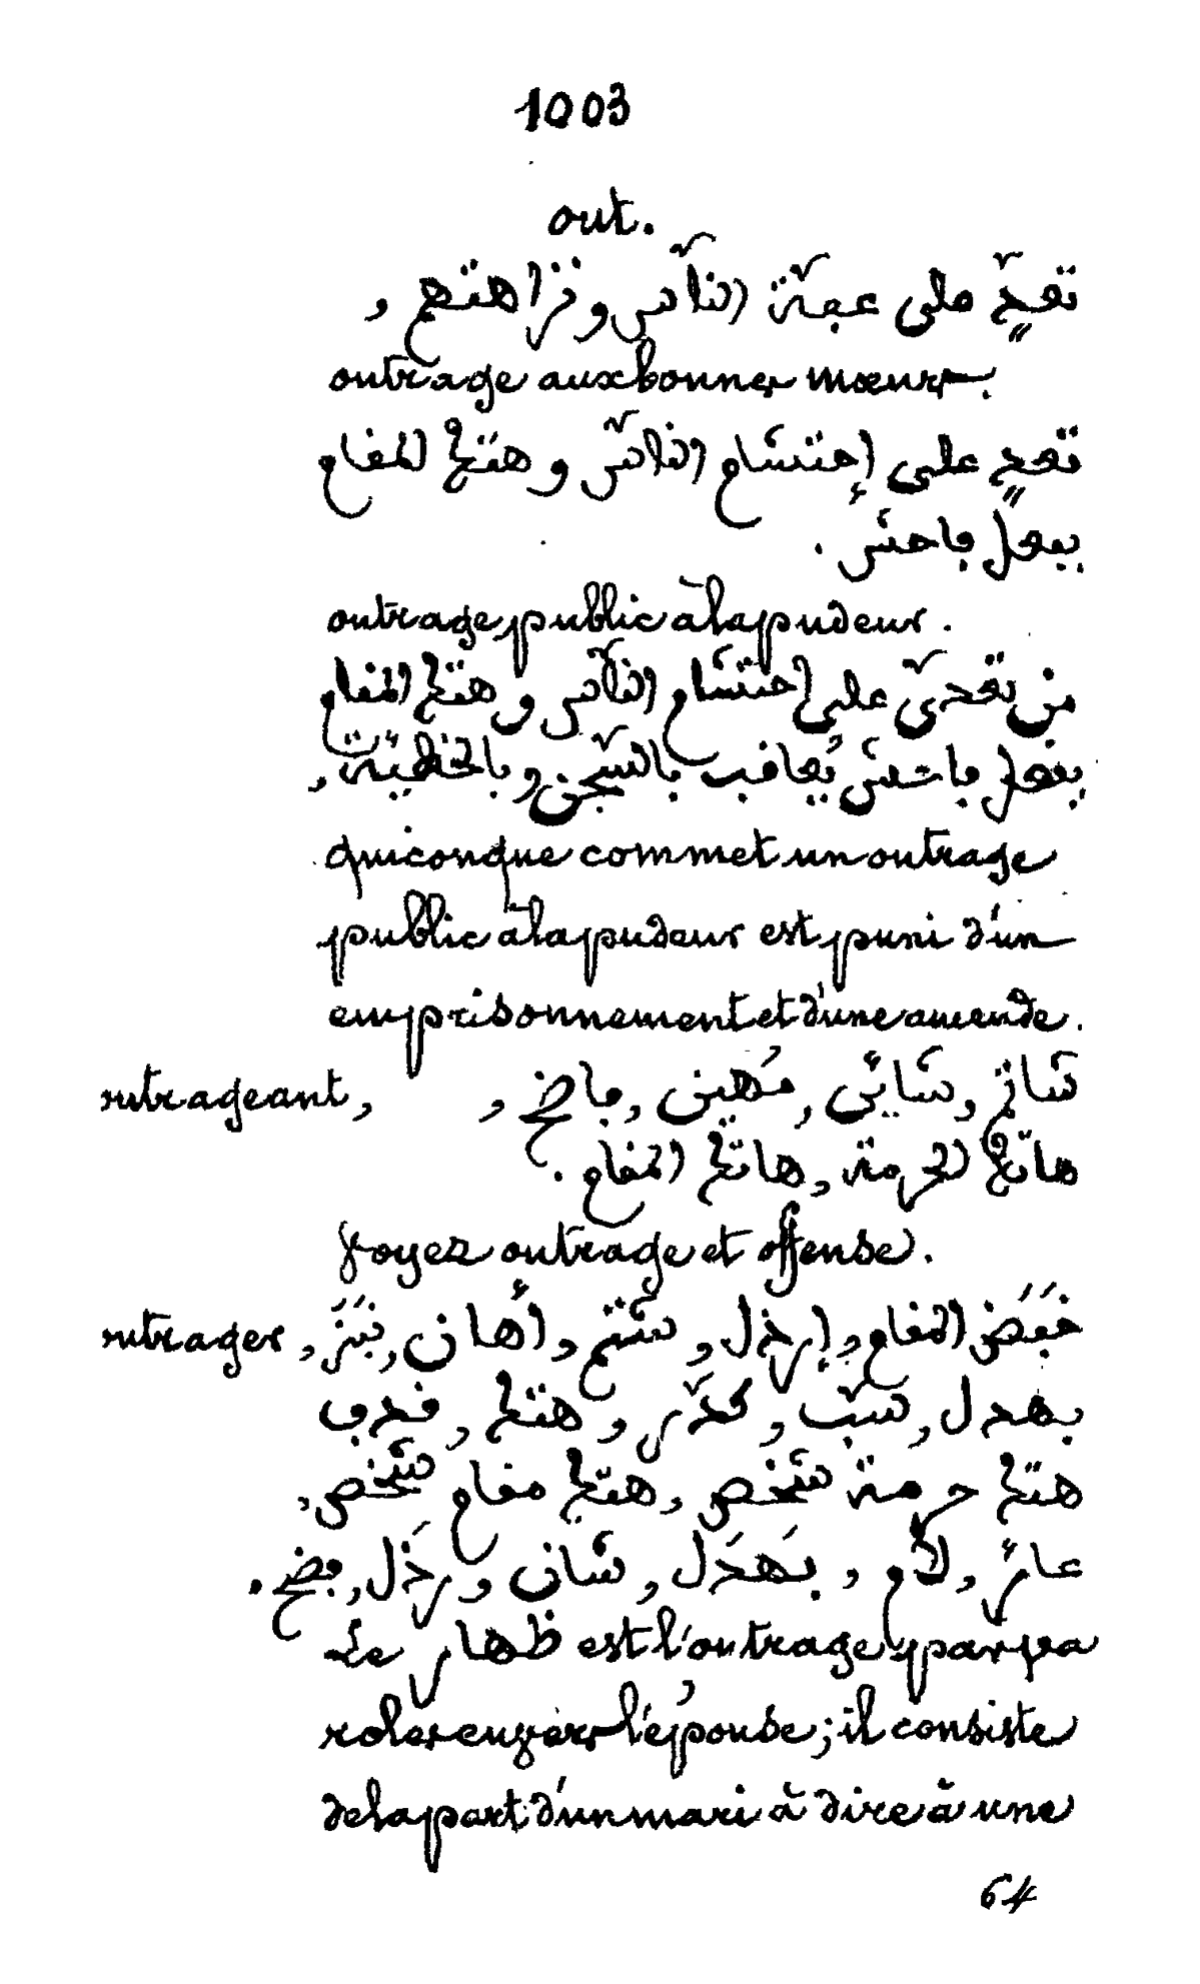 1003
out.
تعدٍّ على عفّة النّاس ونزاهتهم ,
outrage aux bonnes mœurs.
تعدٍ على إحتشام النّاس و هتك المقام
بفعل فاحش .
outrage public à la pudeur.
من تعدّى على احتشام النّاس و هتك المقام
بفعل فاحش يُعاقب بالسّجن و بالخطيّة ,
quiconque commet un outrage
public à la pudeur est puni d'un
emprisonnement et d'une amende.
outrageant, شاتم , شائن , مُهين , فاضح ,
هاتك الحرمة , هاتك المقام .
Voyez outrage et offense.
outrager, خَفَضَ المقام , إرذل , شتم , أهان , نَبَزَ ,
بهدل , سبّ , كدّر , هتك , قذف
هتك حرمة شخص , هتك مقام شخص ,
عايَر , لام , بَهدَل , شان , رذَل , فضح .
Le ظهار est l'outrage par pa
roles envers l'épouse; il consiste
de la part d'un mari à dire à une
64